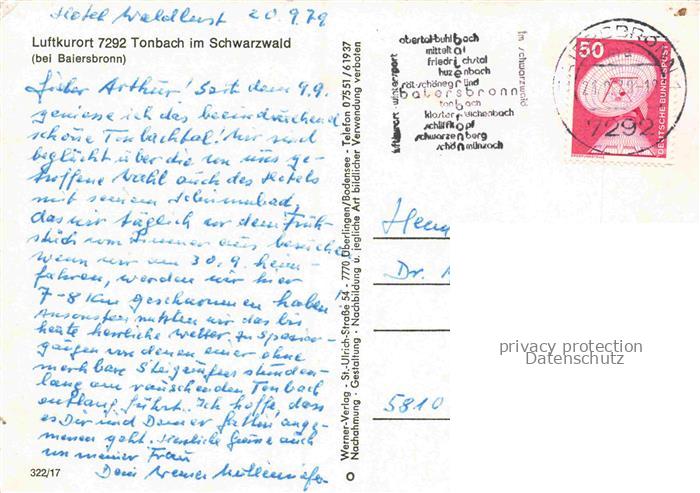 Hotel Waldlust 20.9.79
Luftkurort 7292 Tonbach im Schwarzwald
(bei Baiersbronn)
Lieber Arthur! Seit dem 9.9.
geniesse ich das beeindruckend
schöne Tonbachtal! Wir sind
beglückt über die von uns ge-
troffene Wahl auch des Hotels
mit seinem Schwimmbad,
das wir täglich vor dem Früh-
stück vom Zimmer aus besuchen
wenn wir am 30.9. heim-
fahren, werden wir hier
7-8 Km geschwommen haben!
Ansonsten nutzten wir das bis
heute herrliche Wetter zu Spazier-
gängen von denen einer ohne
merkbare Steigungen stunden-
lang am rauschenden Tonbach
entlang führt. Ich hoffe, dass
es Dir und Deiner Gattin ange-
nehm geht. Herzliche Grüsse auch
von meiner Frau
Dein Werner
322/17
Werner-Verlag - St.-Ulrich-Straße 54 - 7770 Überlingen/Bodensee - Telefon 07551/61937
Nachahmung - Gestaltung - Nachbildung u. jegliche Art bildlicher Verwendung verboten
obertal-buhlbach
mitteltal
friedrichstal
huzenbach
röt-schönegründ
baiersbronn
tonbach
kloster-reichenbach
schliffkopf
schwarzenberg
schönmünzach
luftkurort-wintersport
im schwarzwald
BAIERSBRONN 1
7292
50
DEUTSCHE BUNDESPOST
Dr.
5810
privacy protection
Datenschutz